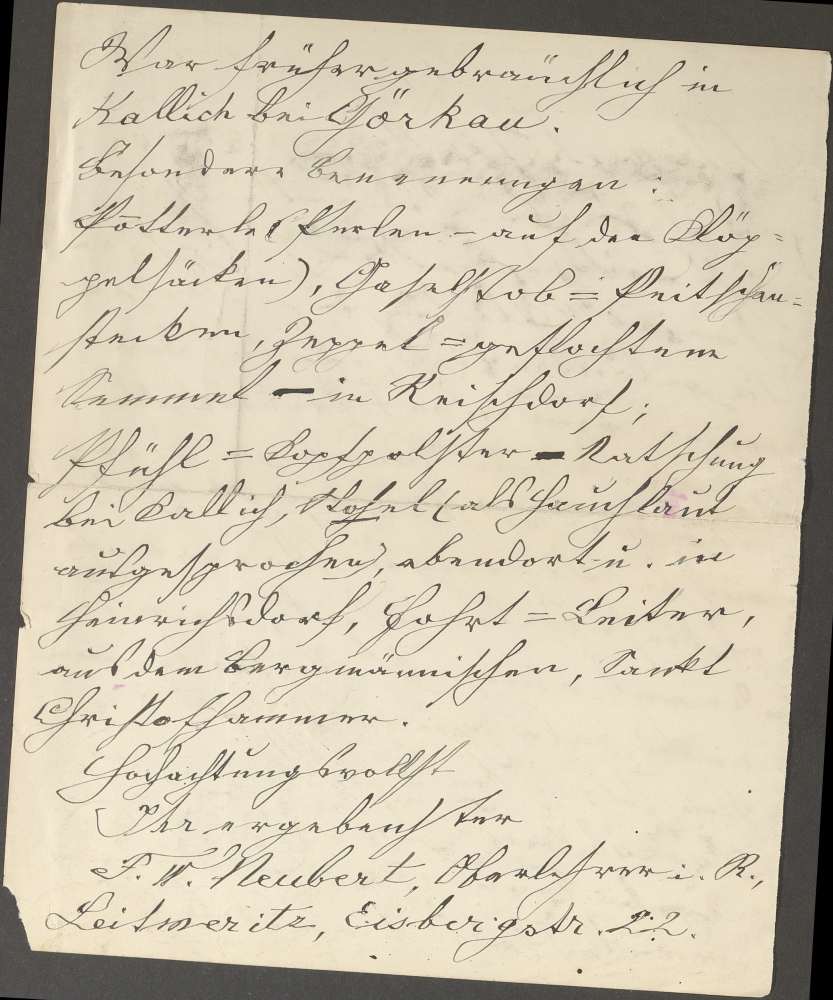 War früher gebräuchlich in
Kallich bei Görkau.
Besondere Benennungen:
Pātterle (Perlen - auf den Klöp=
pelsäcken), Gaselstob = Peitschen=
stecken, Zeppel = geflochtene
Semmel - in Reischdorf;
Pfühl = Kopfpolster - Natschung
bei Kallich, (als Hauchlaut
ausgesprochen), ebendort u. in
Heinrichsdorf, Fohrt = Leiter,
aus dem Bergmännischen, Sankt
Christofhammer.
Hochachtungsvollst
Ihr ergebenster
F. W. Neubert, Oberlehrer i. R.,
Leitmeritz, Eisbergstr. 22.